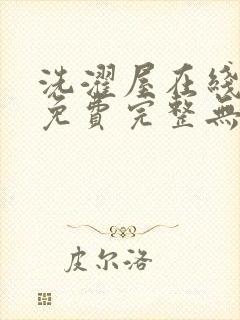 洗濯屋在綫
免費完整無
皮尔洛